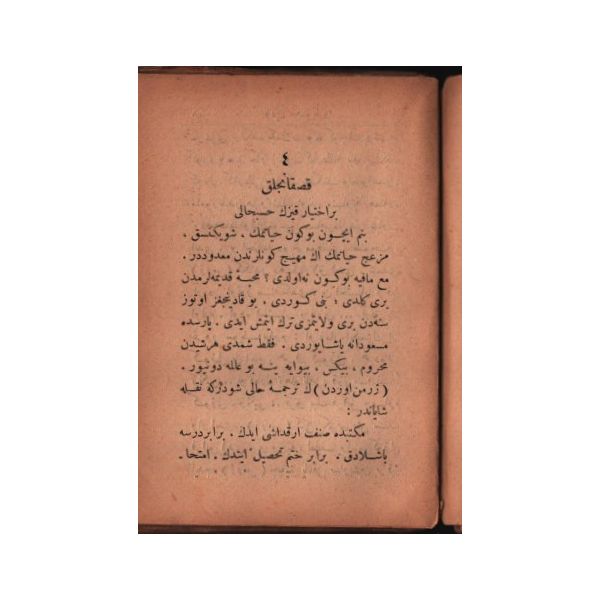 ٤
قصقانجلق
براختيار قيزك حسبحالى
بنم ايچون بوكون حياتمك ، شويكنسق ،
مزعج حياتمك اك مهيج كونلرندن معدوددر .
مع مافيه بوكون نه‌اولدى ؟ محبۀ قديمه‌لرمدن
برى كلدى ؛ بنى كوردى . بو قادينجغز اوتوز
سنه‌دن برى ولايتمزى ترك ايتمش ايدى . پارسده
مسعودانه ياشايوردى . فقط شمدى هرشيدن
محروم ، بيكس ، بيوايه ينه بو دونيور .
( ژرمن ) ك ترجمۀ حالى شودركه نقله
شاياندر :
مكتبده صنف ارقداشى ايدك . برابر درسه
باشلادق . برابر ختم تحصيل ايتدك . امتحا ـ